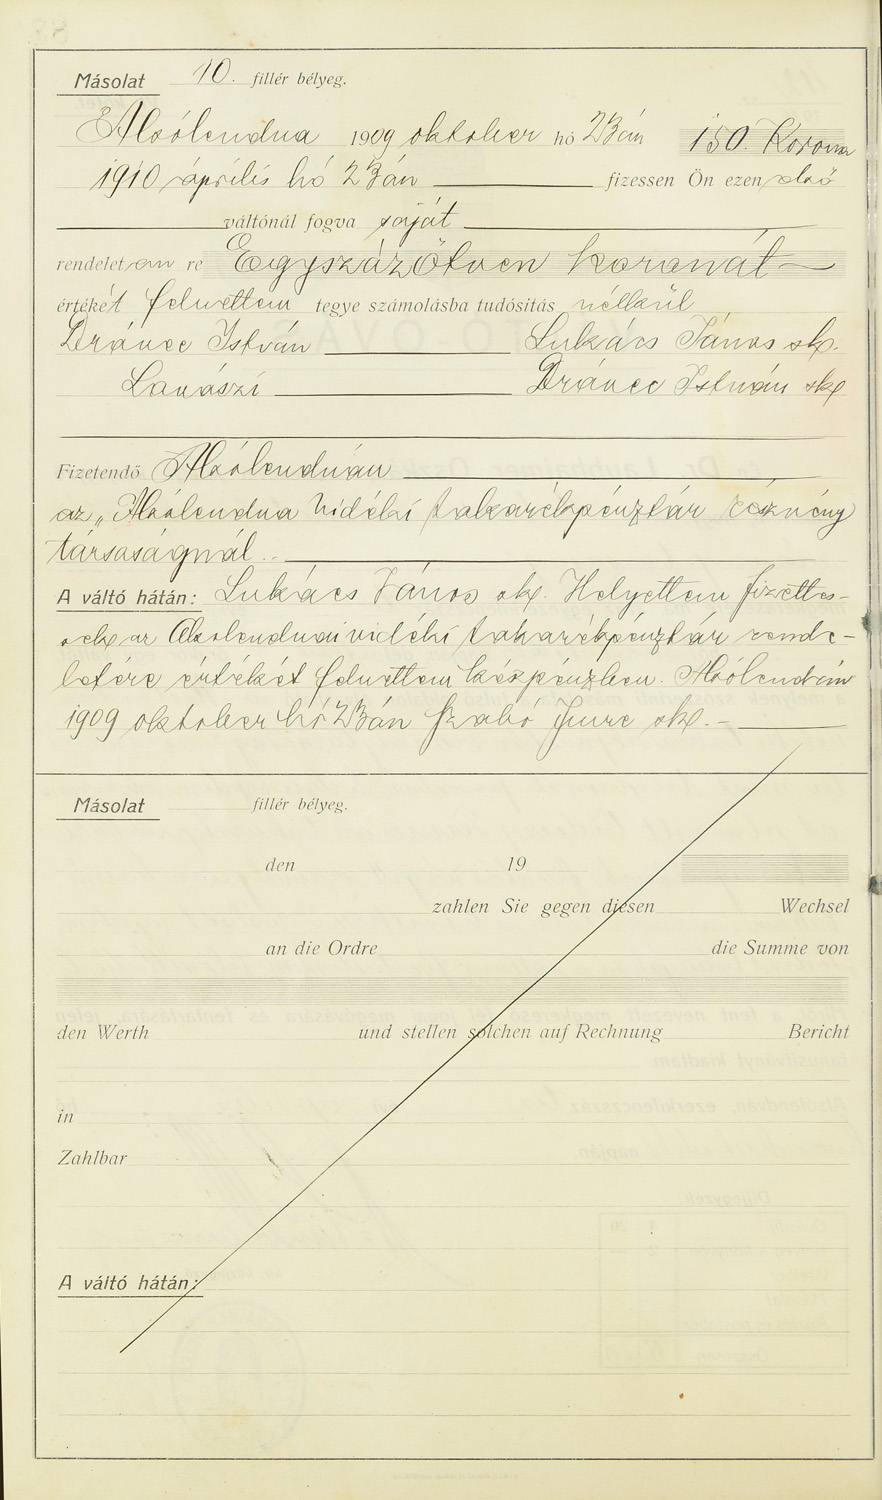 Másolat 10. fillér bélyeg.
Alsólendva 1909 oktober hó 23án 150. Korona
1910 április hó 23án fizessen Ön ezen első
váltónál fogva saját
rendeletem re Egyszázötven koronát
értékét felvettem tegye számolásba tudósítás nélkül
Drávec István Lukács János sk.
Lendvaszi Drávec István sk
Fizetendő Alsólendván
az „Alsólendva Vidéki takarékpénztár részvény
társaságnál ..
A váltó hátán: Lukács János sk. Helyettem fizettes-
sék az Alsolendvai vidéki takarékpénztár rende-
letére értékét felvettem készpénzben. Alsólendván
1909 oktober hó 23án Szabó Imre sk. -
Másolat fillér bélyeg.
den 19
zahlen Sie gegen diesen Wechsel
an die Ordre die Summe von
den Werth und stellen solchen auf Rechnung Bericht
in
Zahlbar
A váltó hátán: